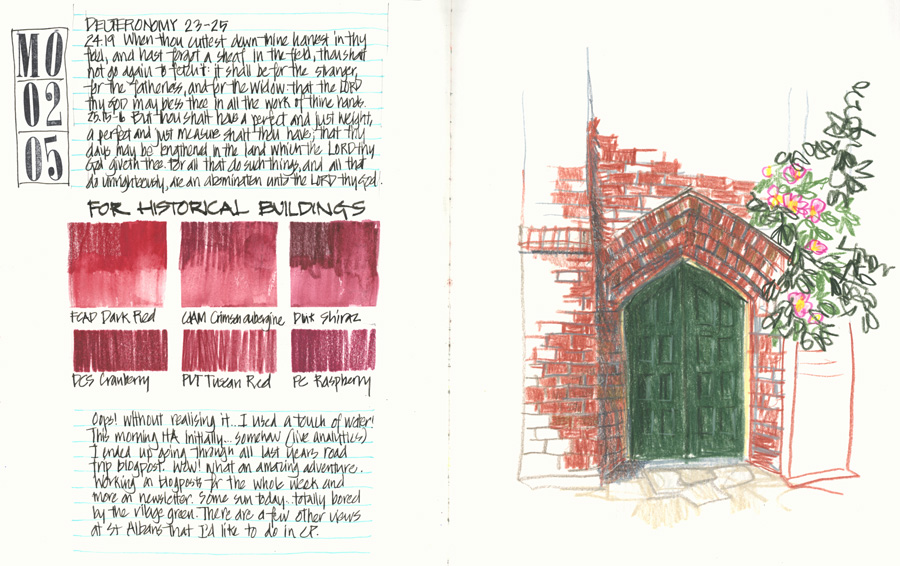 MO
02
05
DEUTERONOMY 23-25
24:19 When thou cuttest down thine harvest in thy
field, and hast forgot a sheaf in the field, thou shalt
not go again to fetch it: it shall be for the stranger,
for the fatherless, and for the widow: that the LORD
thy GOD may bless thee in all the work of thine hands.
25:15-6 But thou shalt have a perfect and just weight,
a perfect and just measure shalt thou have: that thy
days may be lengthened in the land which the LORD thy
God giveth thee. For all that do such things, and all that
do unrighteously, are an abomination unto the LORD thy God.
FOR HISTORICAL BUILDINGS
FCAD Dark Red
CdAM Crimson aubergine
Dwt Shiraz
DCS Cranberry
PVT Tuscan Red
PC Raspberry
Oops! Without realising it... I used a touch of water!
This morning HA initially... somehow (live analytics)
I ended up going through all last years road
trip blogpost. Wow! What an amazing adventure.
Working on blogposts for the whole week and
more on newsletter. Some sun today.. totally bored
by the village green. There are a few other views
at St Albans that I'd like to do in CP.